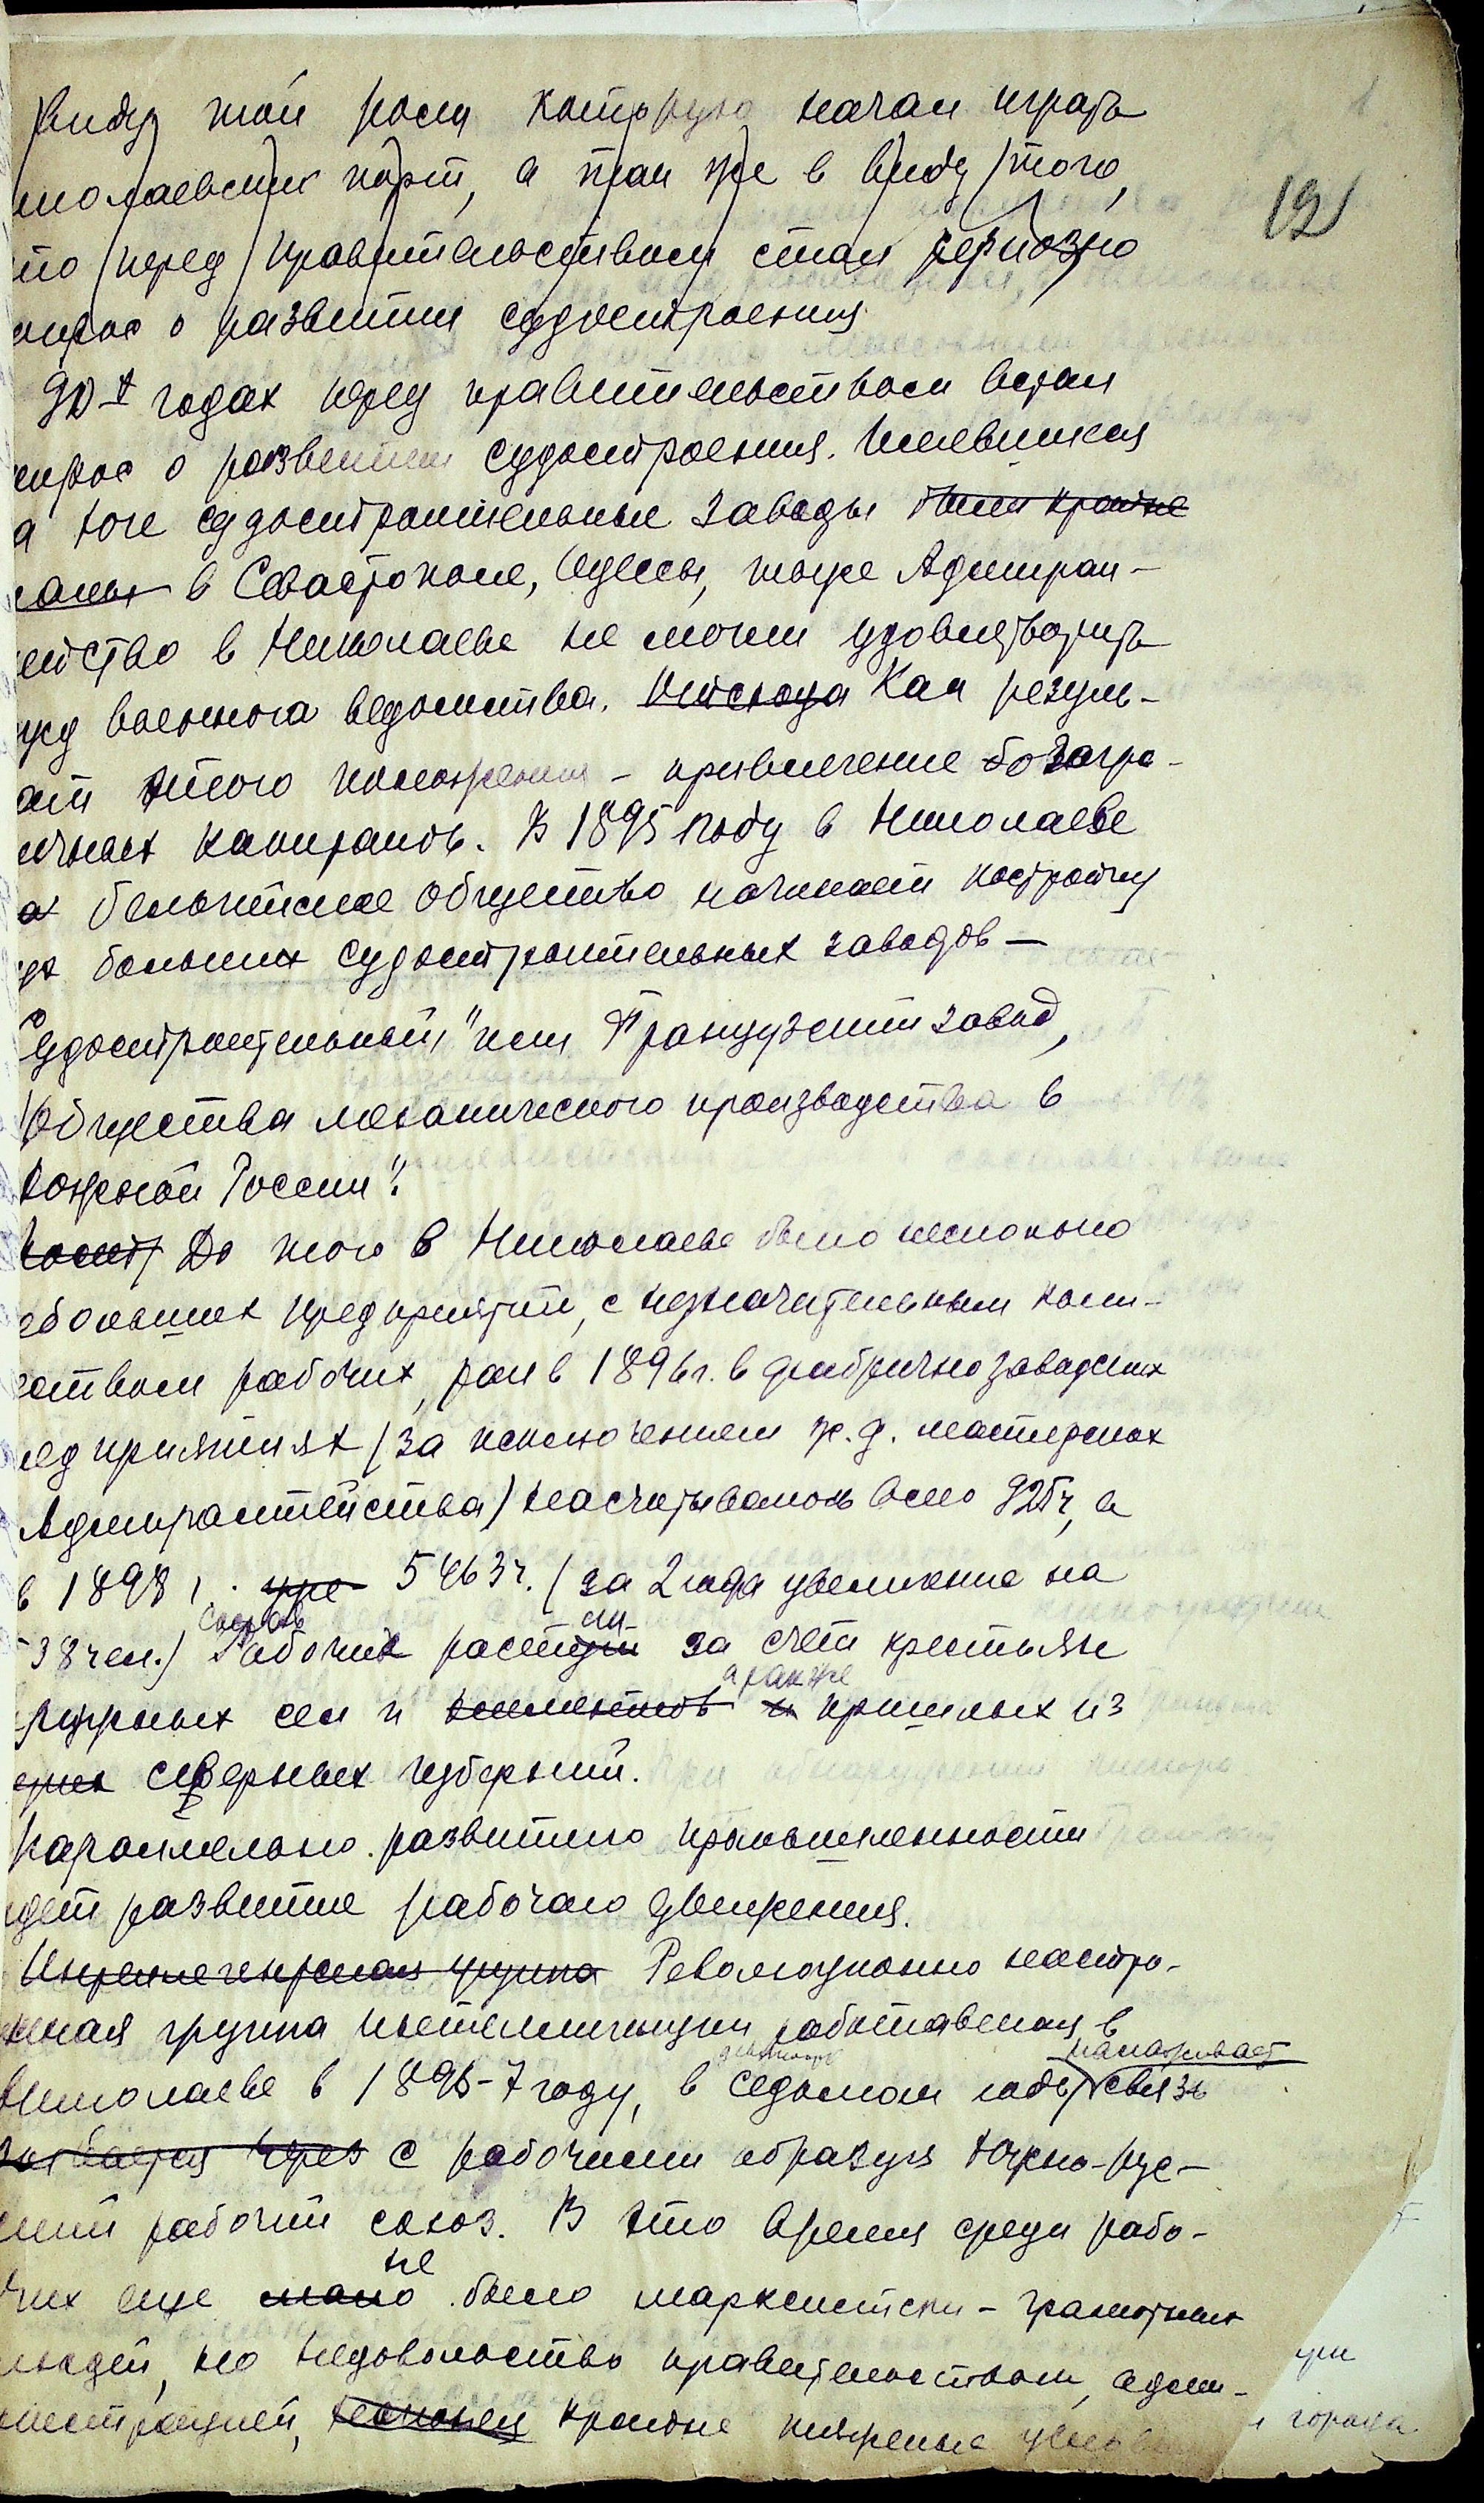 Виду той роли которую начал играть
николаевский порт, а так же в виду того,
что перед правительством стал серьезно
вопрос о развитии судостроения
90-х годах перед правительством встал
вопрос о развитии судостроения. Имевшиеся
на юге судостроительные заводы были крайне
малы в Севастополе, Одессе, также Адмирал-
тейство в Николаеве не могли удовлетворить
нужд военного ведомства. Отсюда Как резуль-
тат этого положения - привлечение загра-
ничных капиталов. В 1895 году в Николаеве
бельгийское общество начинает постройку
двух больших судостроительных заводов —
"Судостроительный" или Французский завод,
"Общества механического производства в
Южной России".
До того в Николаеве было несколько
небольших предприятий, с незначительным коли-
чеством рабочих, так в 1896 г. в фабрично заводских
предприятиях (за исключением ж.д. мастерских
Адмиралтейства) насчитывалось всего 925 ч, а
в 1898 г. уже 5463 ч. (за 2 года увеличение на
38 чел.) Состав Рабочих растет за счет крестьян
окружных сел и элементов и а также пришлых из
северных губерний.
Параллельно развитию промышленности
идет развитие рабочего движения.
Инженерная группа Революционно настро-
енная группа интеллигенции работавшая в
Николаеве в 1896-7 году, в седьмом году налаживает связь
через с рабочими образуя Южно-рус-
ский рабочий союз. В это время среди рабо-
чих еще мало не было марксистски-грамотных
людей, но недовольство правительством, адми-
нистрацией, крайне
города